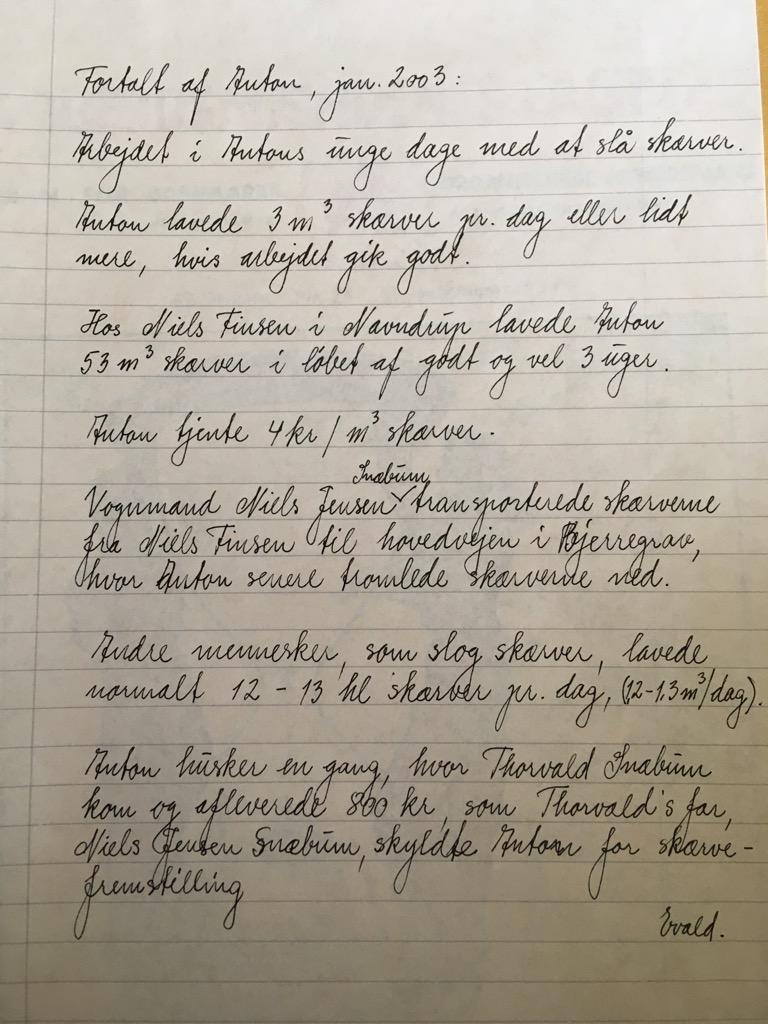 Fortalt af Anton, jan. 2003:
Arbejdet i Antons unge dage med at slå skærver.
Anton lavede 3 m³ skærver pr. dag eller lidt
mere, hvis arbejdet gik godt.
Hos Niels Finsen i Navndrup lavede Anton
53 m³ skærver i løbet af godt og vel 3 uger.
Anton tjente 4 kr / m³ skærver.
Snæbum
Vognmand Niels Jensen transporterede skærverne
fra Niels Finsen til hovedvejen i Bjerregrav,
hvor Anton senere tromlede skærverne ned.
Andre mennesker, som slog skærver, lavede
normalt 12 - 13 hl skærver pr. dag, (1.2-1.3 m³/dag).
Anton husker en gang, hvor Thorvald Snæbum
kom og afleverede 800 kr, som Thorvald's far,
Niels Jensen Snæbum, skyldte Anton for skærve-
fremstilling
Evald.